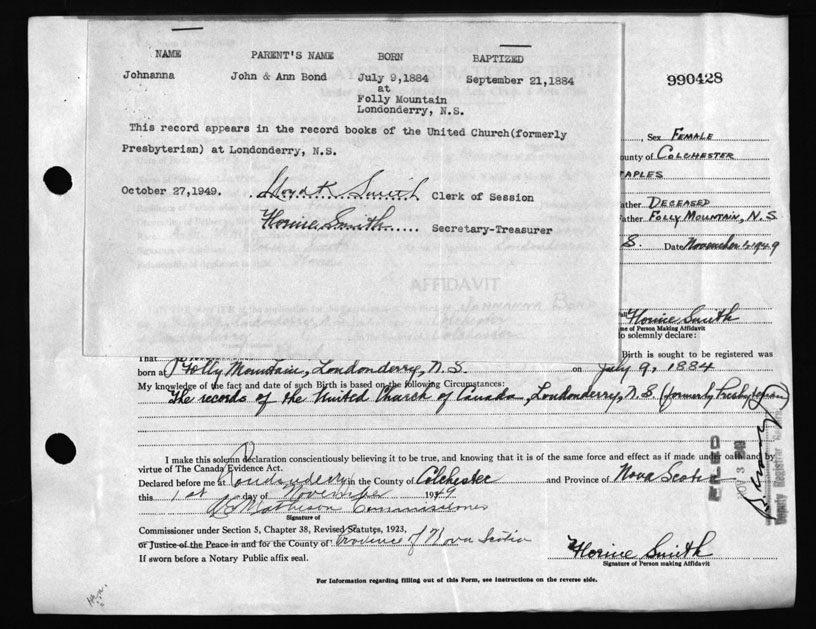 NAME PARENT'S NAME BORN BAPTIZED
Johnanna John & Ann Bond July 9,1884 September 21,1884
at
Folly Mountain
Londonderry, N.S.
990428
This record appears in the record books of the United Church(formerly
Presbyterian) at Londonderry, N.S.
October 27,1949. Lloyd K Smith Clerk of Session
Florine Smith Secretary-Treasurer
, Sex FEMALE
ounty of COLCHESTER
TAPLES
ather DECEASED
ather FOLLY MOUNTAIN, N.S.
S. Date November 1, 1949
AFFIDAVIT
JOHNANNA BOND
Florine Smith
me of Person Making Affidavit
do solemnly declare:
That Birth is sought to be registered was
born at Folly Mountain, Londonderry, N.S. on July 9, 1884
My knowledge of the fact and date of such Birth is based on the following Circumstances:
The records of the United Church of Canada, Londonderry, N.S. (formerly Presbyterian)
I make this solemn declaration conscientiously believing it to be true, and knowing that it is of the same force and effect as if made under oath and by
virtue of The Canada Evidence Act.
Declared before me at Londonderry in the County of Colchester and Province of Nova Scotia
this 1st day of November 1949
Matheson Commissioner
Signature of
Commissioner under Section 5, Chapter 38, Revised Statutes, 1923,
or Justice of the Peace in and for the County of Province of Nova Scotia
If sworn before a Notary Public affix seal.
Florine Smith
Signature of Person making Affidavit
For Information regarding filling out of this Form, see instructions on the reverse side.
FILED
Deputy Registrar